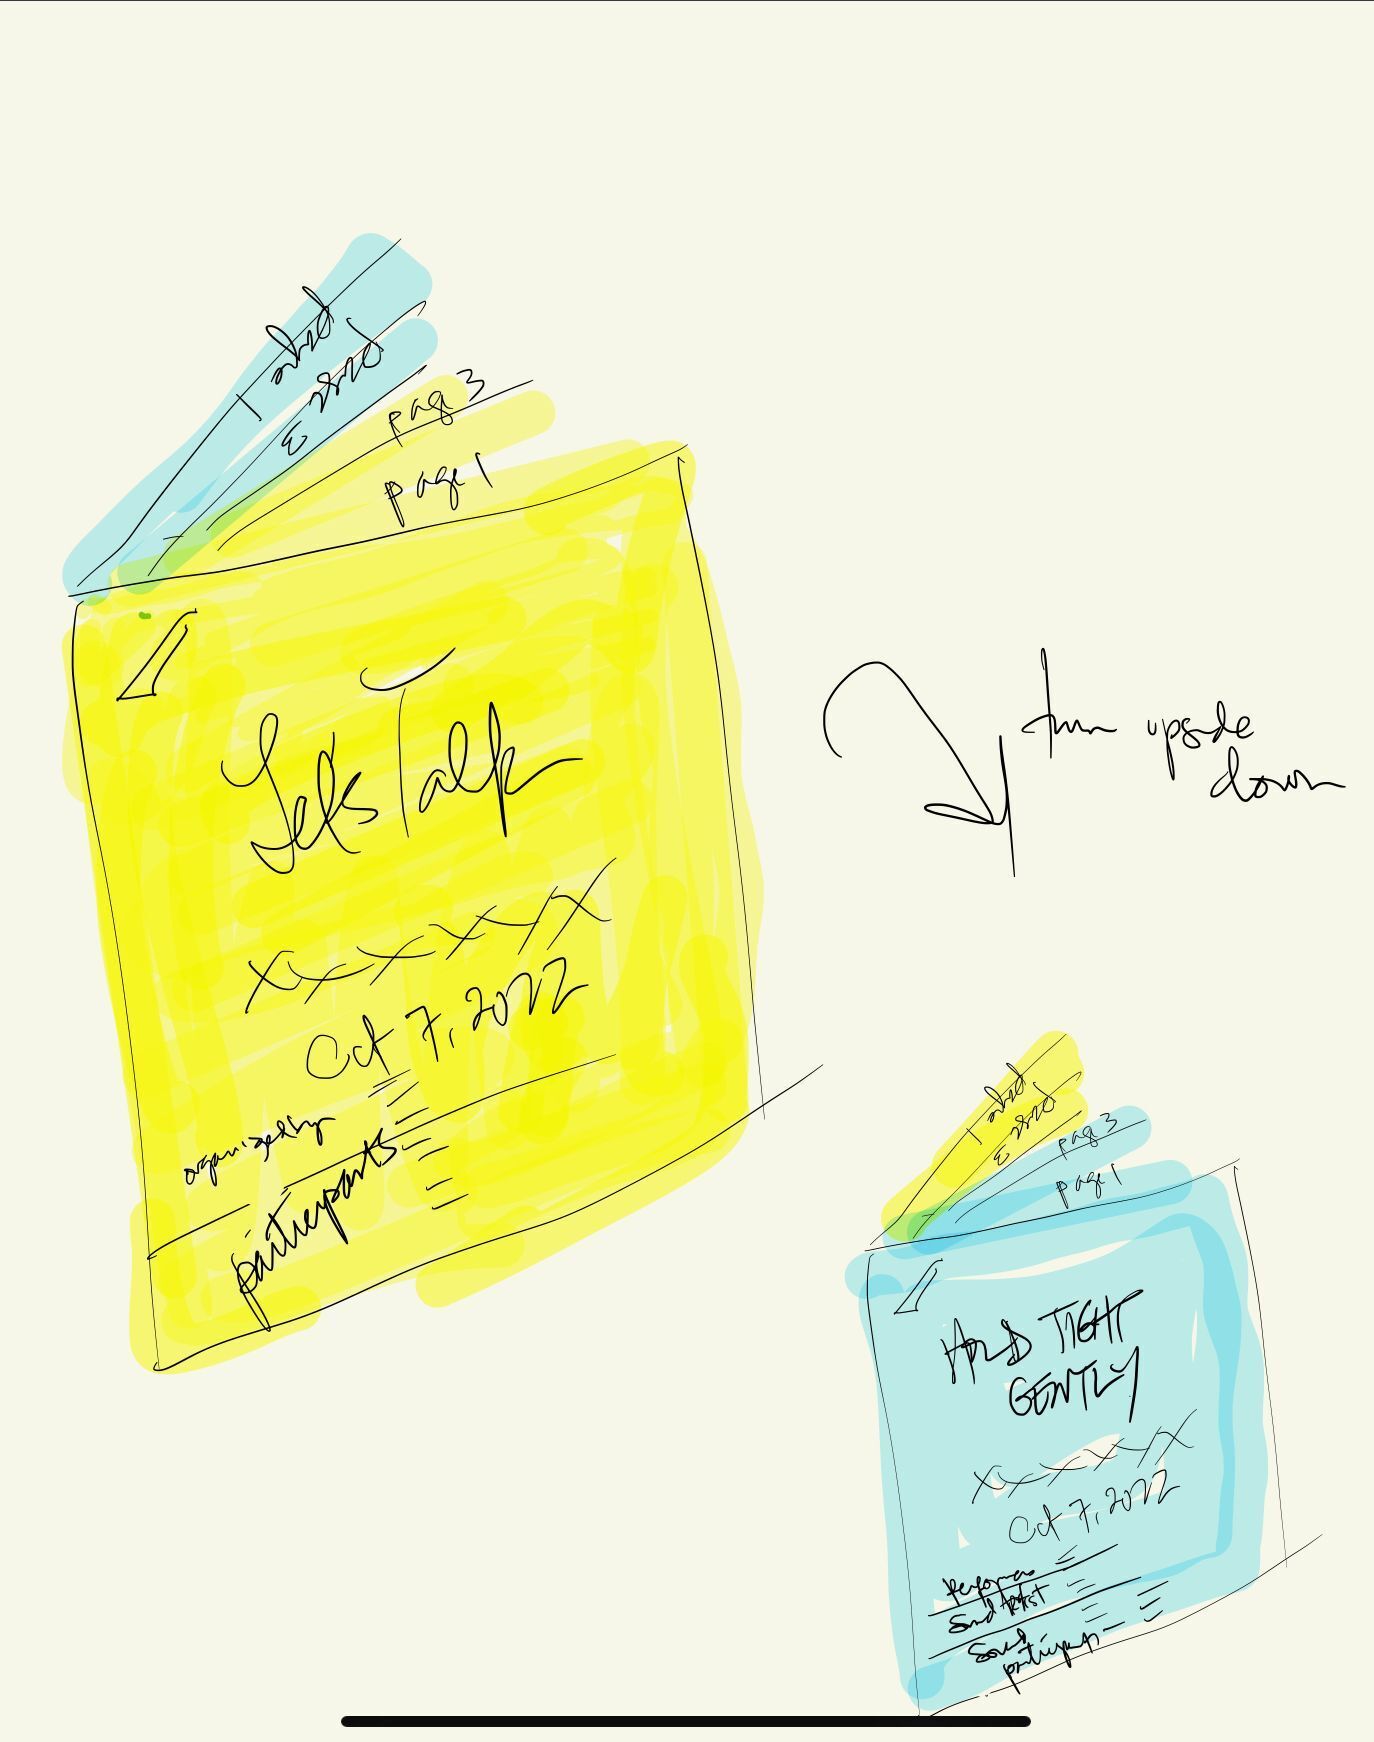 page 1
page 3
pag 3
page 1
Let's Talk
XXXXXX
Oct 7, 2022
organized by
participants
turn upside
down
page 1
page 3
pag 3
page 1
HOLD TIGHT
GENTLY
XXXXXX
Oct 7, 2022
Performers
Sound Artist
Sound
participants